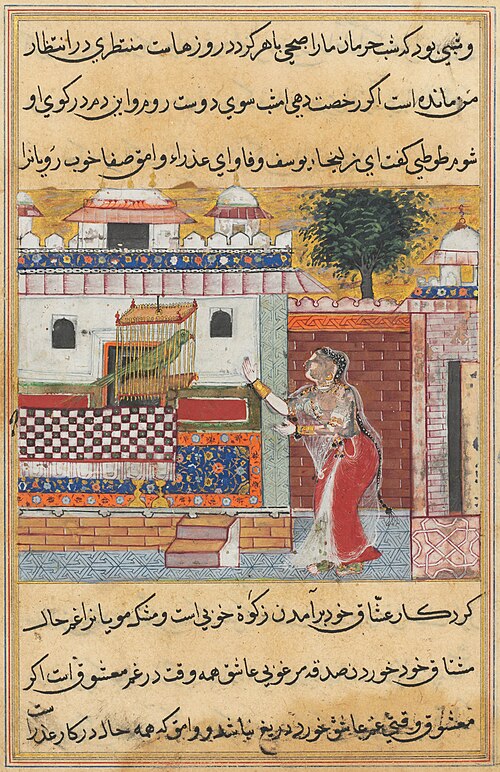 و شبی بود که شب حرمان ما را صبحی ظاهر گردد روزهاست منتظری در انتظار
من مانده است اگر رخصت دهی امشب سوی دوست روم و این دم در کوی او
شوم طوطی گفت ای زلیخاء یوسف وفا و ای عذراء وامق صفا خوب رویانرا
کرد کار عشاق خود برآمدن زکوة خوبی است و مشک مویانرا غم حال
مشتاق خود خوردن صدقه مرغوبی عاشق همه وقت در غم معشوق است اگر
معشوق وقتی غم عاشق خورد دریغ نباشد و وامق که همه حال در کار عذراست